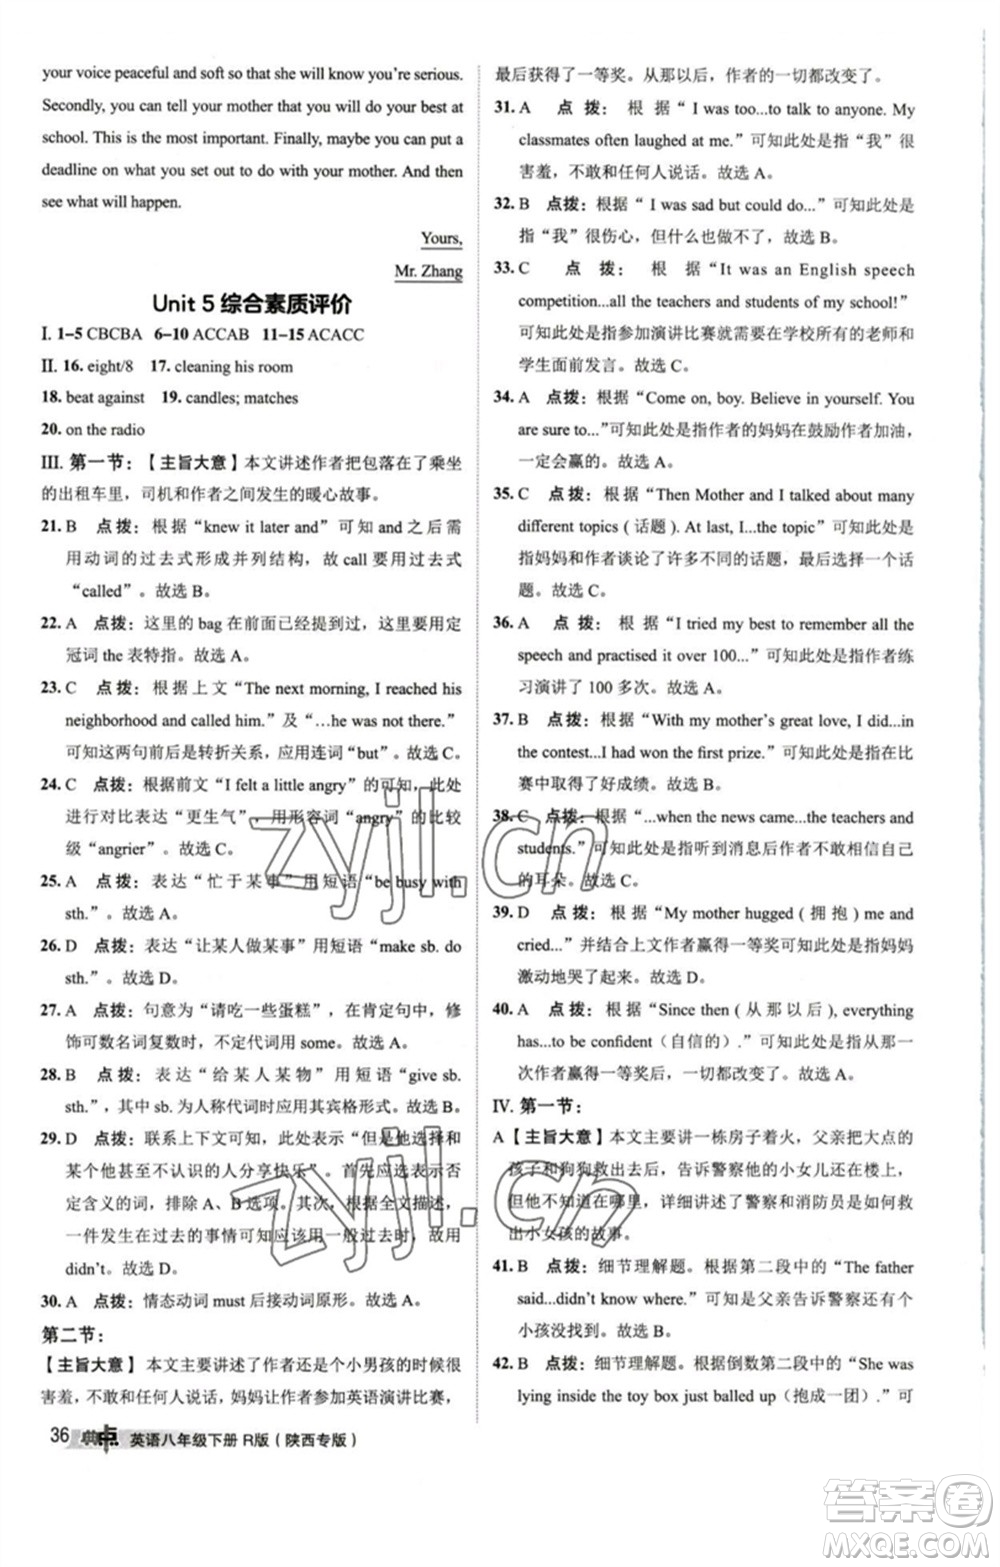 your voice peaceful and soft so that she will know you're serious.
Secondly, you can tell your mother that you will do your best at
school. This is the most important. Finally, maybe you can put a
deadline on what you set out to do with your mother. And then
see what will happen.
Yours,
Mr. Zhang
Unit 5 综合素质评价
I. 1-5 CBCBA 6-10 ACCAB 11-15 ACACC
II. 16. eight/8 17. cleaning his room
18. beat against 19. candles; matches
20. on the radio
III. 第一节：【主旨大意】本文讲述作者把包落在了乘坐
的出租车里，司机和作者之间发生的暖心故事。
21. B 点拨：根据“knew it later and”可知 and 之后需
用动词的过去式形成并列结构，故 call 要用过去式
“called”。故选 B。
22. A 点拨：这里的 bag 在前面已经提到过，这里要用定
冠词 the 表特指。故选 A。
23. C 点拨：根据上文“The next morning, I reached his
neighborhood and called him.”及“…he was not there.”
可知这两句前后是转折关系，应用连词“but”。故选 C。
24. C 点拨：根据前文“I felt a little angry”的可知，此处
进行对比表达“更生气”，用形容词“angry”的比较
级“angrier”。故选 C。
25. A 点拨：表达“忙于某事”用短语“be busy with
sth.”。故选 A。
26. D 点拨：表达“让某人做某事”用短语“make sb. do
sth.”。故选 D。
27. A 点拨：句意为“请吃一些蛋糕”，在肯定句中，修
饰可数名词复数时，不定代词用 some。故选 A。
28. B 点拨：表达“给某人某物”用短语“give sb.
sth.”，其中 sb. 为人称代词时应用其宾格形式。故选 B。
29. D 点拨：联系上下文可知，此处表示“但是他选择和
不认识的人分享快乐”。首先应选择表示否
定含义的词，排除 A、B 选项。其次，根据全文描述，
一件不是过去的事情可知应该用一般过去时，故用
didn't。故选 D。
30. A 点拨：情态动词 must 后接动词原形。故选 A。
第二节：
【主旨大意】本文主要讲述了作者还是个小男孩的时候很
害羞，不敢和任何人说话，妈妈让作者参加英语演讲比赛，
36 典点 英语八年级下册 R版（陕西专版）
最后获得了一等奖。从那以后，作者的一切都改变了。
31. A 点拨：根据“I was too...to talk to anyone. My
classmates often laughed at me.”可知此处是指“我”很
害羞，不敢和任何人说话。故选 A。
32. B 点拨：根据“I was sad but could do...”可知此处是
指“我”很伤心，但什么也做不了。故选 B。
33. C 点拨：根据“It was an English speech
competition...all the teachers and students of my school!”
可知此处是指参加演讲比赛就需要在学校所有的老师和
学生面前发言。故选 C。
34. A 点拨：根据“Come on, boy. Believe in yourself. You
are sure to...”可知此处是指作者的妈妈在鼓励作者加油，
一定会赢的。故选 A。
35. C 点拨：根据“Then Mother and I talked about many
different topics (话题). At last, I...the topic”可知此处是
指妈妈和作者谈论了许多不同的话题，最后选了一个话
题。故选 C。
36. A 点拨：根据“I tried my best to remember all the
speech and practised it over 100...”可知此处是指作者练
习演讲了 100 多次。故选 A。
37. B 点拨：根据“With my mother's great love, I did...in
the contest...I had won the first prize.”可知此处是指在比
赛中取得了好成绩。故选 B。
38. C 点拨：根据“...when the news came...the teachers and
students.”可知此处是指听到消息后作者不敢相信自己
的耳朵。故选 C。
39. D 点拨：根据“My mother hugged (拥抱) me and
cried...”并结合上文作者赢得一等奖可知此处是指妈妈
激动地哭了起来。故选 D。
40. A 点拨：根据“Since then (从那以后), everything
has...to be confident (自信的).”可知此处是指从那一
次作者获得一等奖后，一切都改变了。故选 A。
IV. 第一节：
A【主旨大意】本文主要讲一栋房子着火，父亲把大点的
孩子和狗狗救出去后，告诉警察他的小女儿还在楼上，
但他不知道在哪里，详细讲述了警察和消防员是如何救
出小女孩的故事。
41. B 点拨：细节理解题。根据第二段中的“The father
said...didn't know where.”可知是父亲告诉警察还有个
小孩没找到。故选 B。
42. B 点拨：细节理解题。根据倒数第二段中的“She was
lying inside the toy box just balled up (抱成一团).”可
zyjl.cn
zyjl.cn
答案圈
MXQE.COM